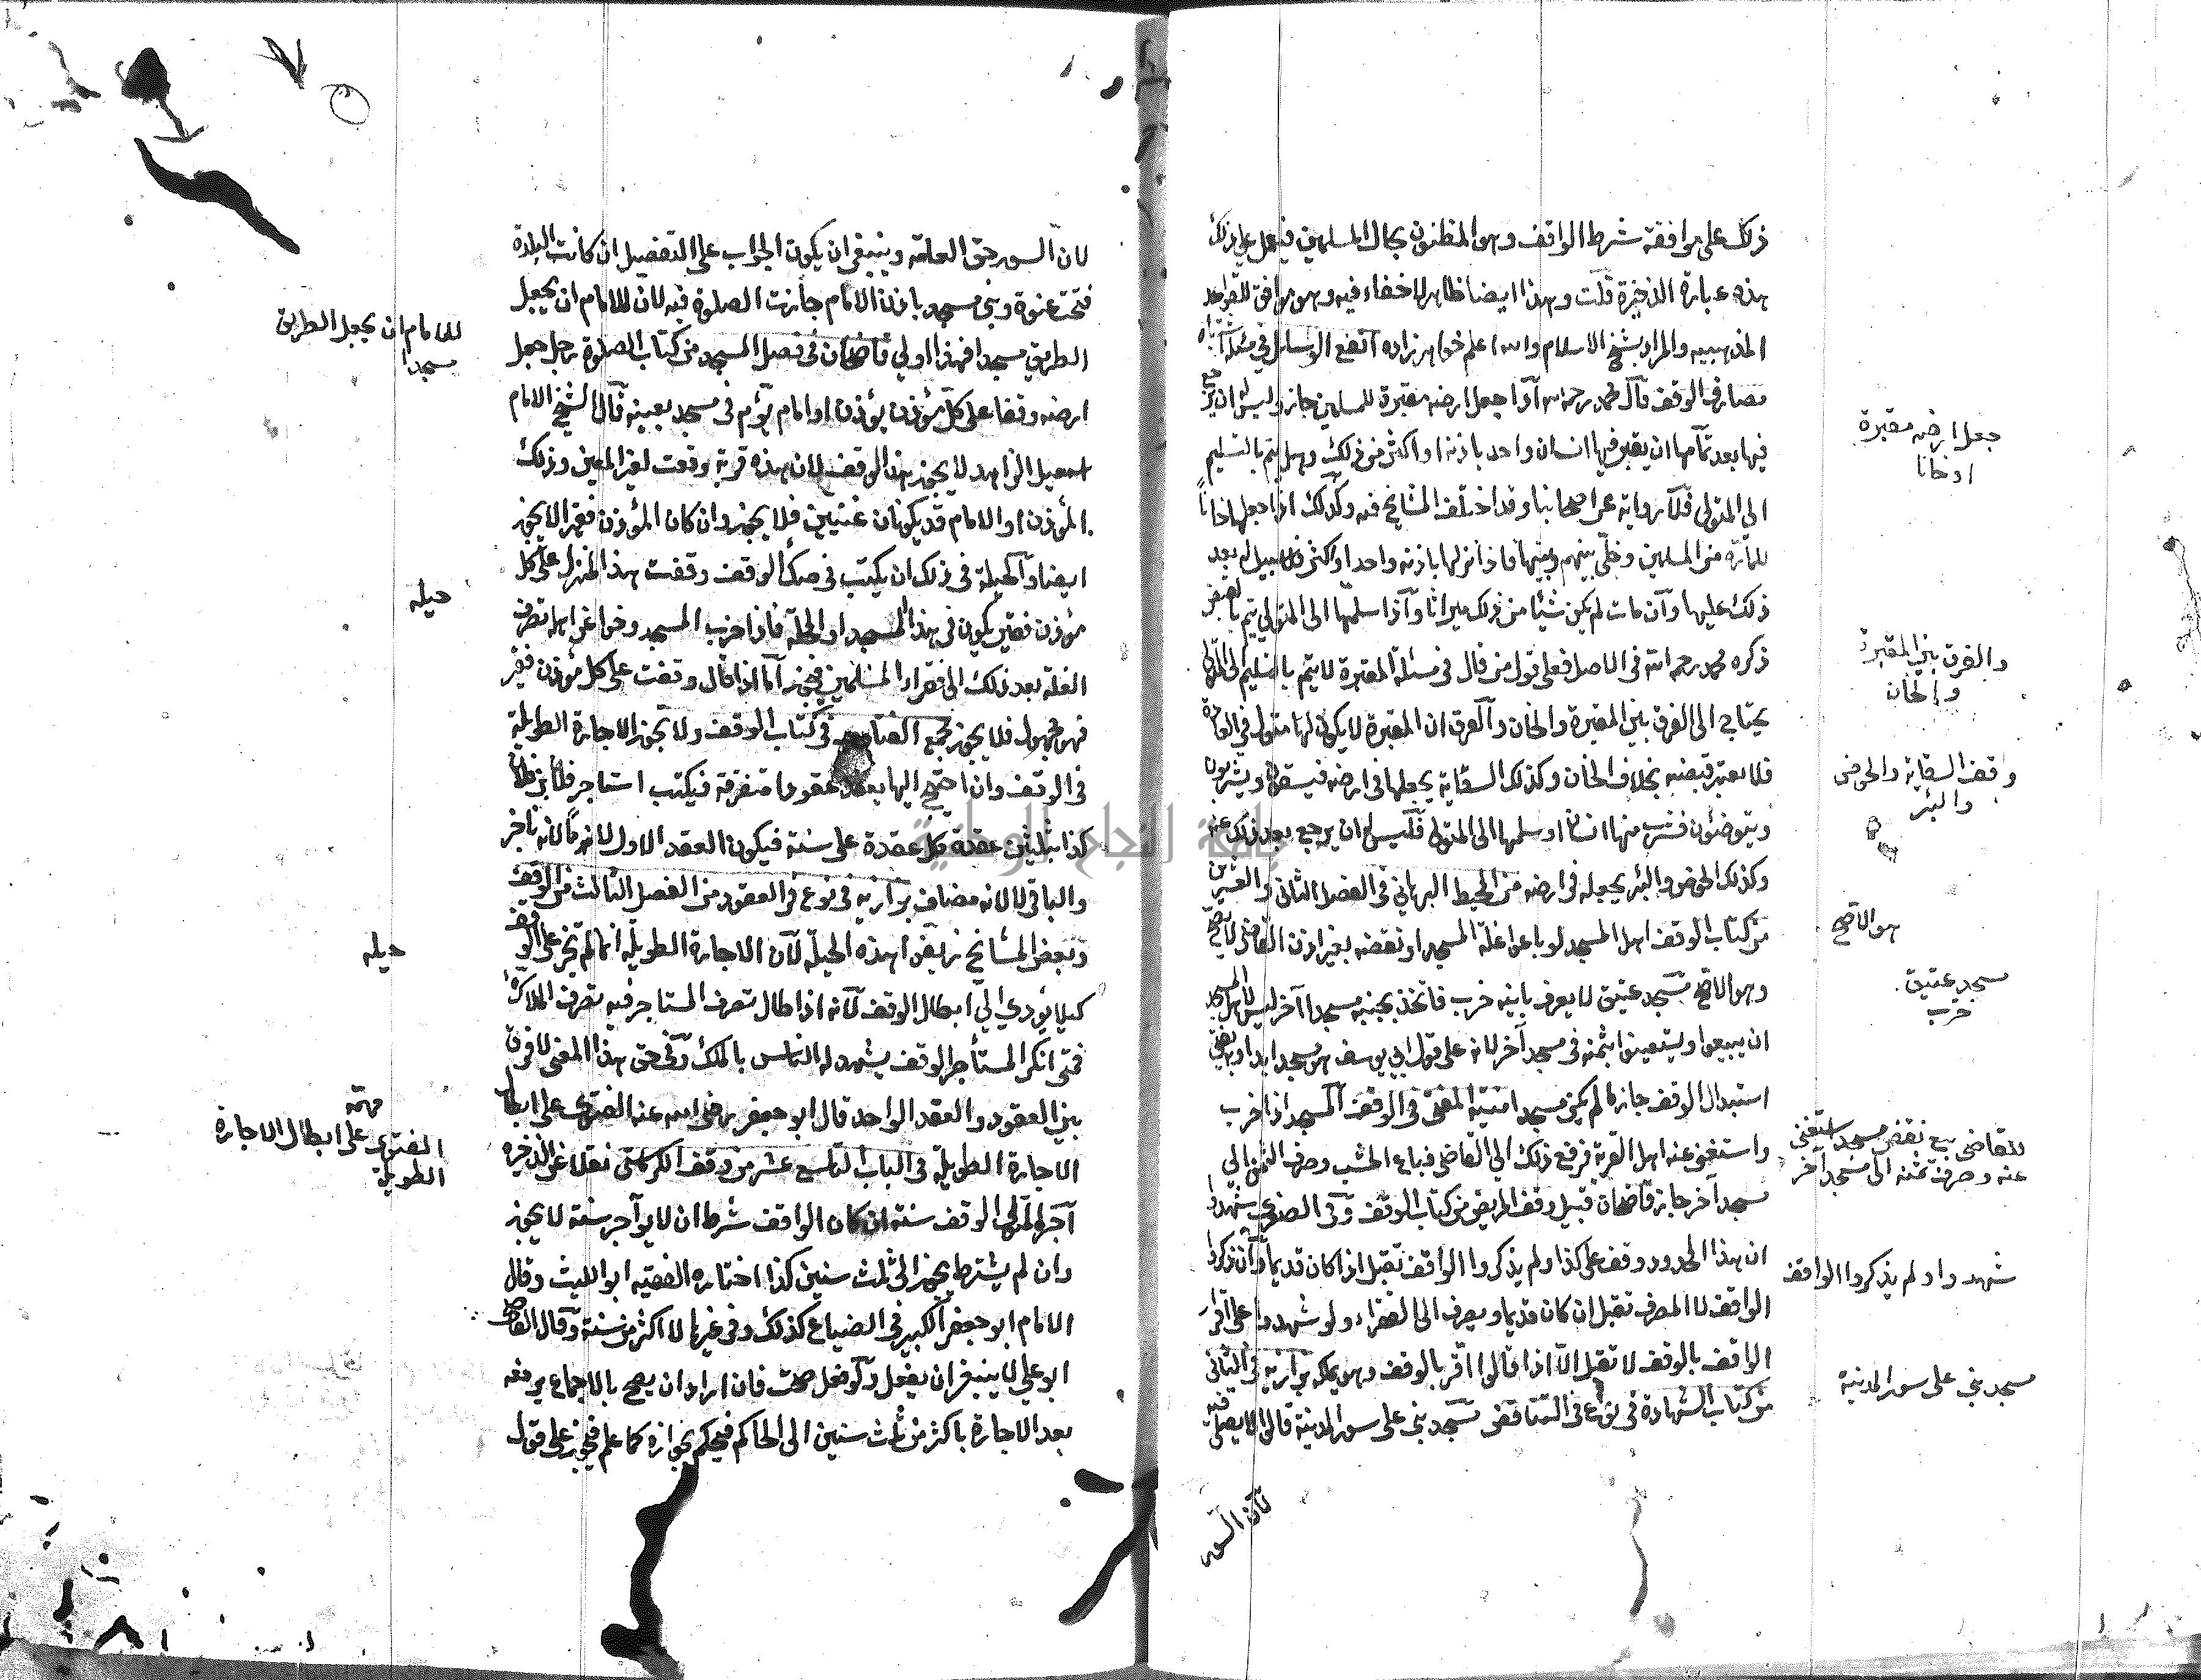 ذلك على موافقة شرط الواقف وهو المظنون بحال المسلمين فيعمل على ذلك
هذه عبارة الذخيرة قلت وهذا ايضا ظاهر لاخفاء فيه وهو موافق للقواعد
المذهبيه والمراد بشيخ الاسلام والله اعلم خواهر زاده انفع الوسائل في مسئلة
مصارف الوقف قال محمد رحمه الله اذا جعل ارضه مقبرة للمسلمين جاز وليس له ان يرجع
فيها بعد تمامها ان يقبر فيها انسان واحد باذنه او اكثر من ذلك وهل يتم بالتسليم
الى المتولي فلا رواية عن اصحابنا وقد اختلف المشايخ فيه وكذلك اذا جعلها خانا
للمارة من المسلمين وخلى بينهم وبينها فاذا نزلها باذنه واحد او اكثر فلا سبيل له بعد
ذلك عليها وان مات لم يكن شيئا من ذلك ميراثا واذا سلمها الى المتولي يتم بالقبض
ذكره محمد رحمه الله في الاصل فعلى قول من قال في مسئلة المقبرة لا يتم بالتسليم الى المتولي
يحتاج الى الفرق بين المقبرة والخان والفرق ان المقبرة لا يكون لها متول في العادة
فلا يعتبر قبضه بخلاف الخان وكذلك السقاية يجعلها في ارضه فيسقون ويشربون
ويتوضئون فشرب منها انسان او سلمها الى المتولي فليس له ان يرجع بعد ذلك عنه
وكذلك الحوض والبئر يجعله في ارضه من المحيط البرهاني في الفصل الثاني والعشرين
من كتاب الوقف اهل المسجد لو باعوا غلة المسجد او نقضه بغير اذن القاضي لا يصح
وهو الاصح مسجد عتيق لا يعرف بانيه خرب فاتخذ بجنبه مسجدا آخر ليس لاهل المسجد
ان يبيعوا ويستعينوا بثمنه في مسجد آخر لانه على قول ابي يوسف هو مسجد ابدا وبه يفتى
استبدال الوقف جاز ما لم يكن مسجدا منية المفتي في الوقف المسجد اذا خرب
واستغنى عنه اهل القرية فرفع ذلك الى القاضي فباع الخشب وصرف الثمن الى
مسجد آخر جاز قاضخان قبيل وقف المريض من كتاب الوقف وفي الصغرى شهدوا
ان هذا المحدود وقف على كذا ولم يذكروا الواقف تقبل اذا كان قديما وان ذكروا
الواقف لا المصرف تقبل ان كان قديما ويصرف الى الفقراء ولو شهدوا على اقرار
الواقف بالوقف لا تقبل الا اذا قالوا اقر بالوقف وهو يملكه بزازية في الثاني
من كتاب الشهادة في نوع في التناقض مسجد بني على سور المدينة قالوا لا يصلى فيه
لان السور
جعل ارضه مقبرة
او خانا
والفرق بين المقبرة
والخان
وقف السقاية والحوض
والبئر
هو الاصح
مسجد عتيق
خرب
للقاضي بيع نقض مسجد استغني
عنه وصرف ثمنه الى مسجد آخر
شهدوا ولم يذكروا الواقف
مسجد بني على سور المدينة
لان السور حق العامة وينبغي ان يكون الجواب على التفصيل ان كانت البلدة
فتحت عنوة وبني مسجد باذن الامام جازت الصلوة فيه لان للامام ان يجعل
الطريق مسجدا فهذا اولى قاضخان في فصل المسجد من كتاب الصلوة رجل جعل
ارضه وقفا على كل مؤذن يؤذن او امام يؤم في مسجد بعينه قال الشيخ الامام
اسمعيل الزاهد لا يجوز هذا الوقف لان هذه قربة وقعت لغير المعين وذلك
المؤذن او الامام قد يكونان غنيين فلا يجوز وان كان المؤذن فقيرا لا يجوز
ايضا والحيلة في ذلك ان يكتب في صك الوقف وقفت هذا المنزل على كل
مؤذن فقير يكون في هذا المسجد او المحلة فاذا خرب المسجد وخوا عن اهله تصرف
الغلة بعد ذلك الى فقراء المسلمين فيجوز اما اذا قال وقفت على كل مؤذن فقير
فهو مجهول فلا يجوز مجمع الفتاوى في كتاب الوقف ولا تجوز الاجارة الطويلة
في الوقف وان احتيج اليها يعقد عقودا متفرقة فيكتب استاجر فلان بن فلان
كذا بثلثين عقدة كل عقدة على سنة فيكون العقد الاول لازما لانه ناجز
والباقي لا لانه مضاف بزازيه في نوع في العقود من الفصل الثالث من الوقف
وبعض المشايخ زيفوا هذه الحيلة لان الاجارة الطويلة انما لم تجز على الوقف
كيلا يؤدي الى ابطال الوقف لانه اذا طال تصرف المستاجر فيه تصرف الملاك
فمتى انكر المستأجر الوقف يشهد له الناس بالملك وفي حق هذا المعنى لا فرق
بين العقود والعقد الواحد قال ابو جعفر رضي الله عنه الفتوى على ابطال
الاجارة الطويلة في الباب التاسع عشر من وقف الكركمتي نقلا عن الذخيره
آجر المتولي الوقف سنة ان كان الواقف شرط ان لا يوآجر سنة لا يجوز
وان لم يشترط يجوز الى ثلث سنين كذا اختاره الفقيه ابو الليث وقال
الامام ابو جعفر الكبير في الضياع كذلك وفي غيرها لا اكثر من سنة وقال القاضي
ابو علي لا ينبغي ان يفعل ولو فعل صحت فان اراد ان يصح بالاجماع يرفعه
بعد الاجارة باكثر من ثلث سنين الى الحاكم فيحكم بجوازه كما علم فيجوز على قول
للامام ان يجعل الطريق
مسجدا
حيله
حيله
مهمة
الفتوى على ابطال الاجارة
الطويلة
جامعة النجاح الوطنية